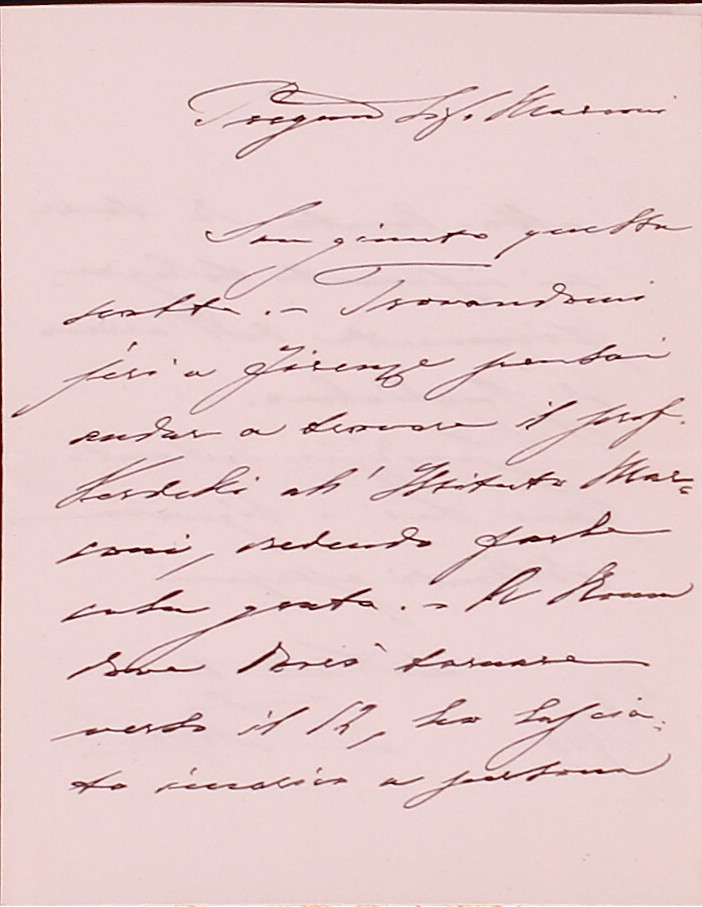 Pregmo Sig. Marconi
Son giunto questa
notte. - Trovandomi
jeri a Firenze pensai
andar a trovare il prof.
all' Istituto Mar=
coni, credendo farle
cosa grata. - A Roma
dove dovrò tornare
verso il 12, ho lascia-
to incarico a persona